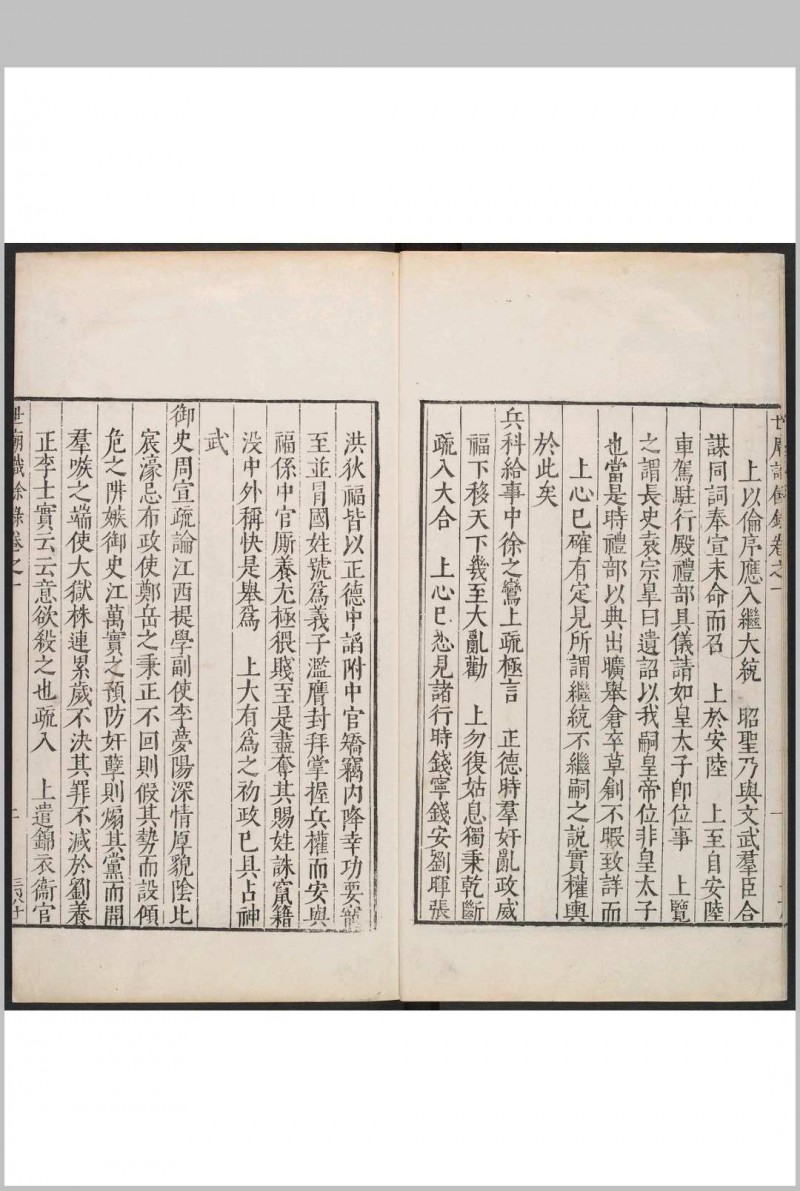 上以倫序應入繼大統　昭聖乃與文武羣臣合
謀同詞奉宣末命而召　上於安陸　上至自安陸
車駕駐行殿禮部具儀請如皇太子卽位事　上覽
之謂長史袁宗皐曰遺詔以我嗣皇帝位非皇太子
也當是時禮部以典出曠舉倉卒草創不暇致詳而
上心已確有定見所謂繼統不繼嗣之說實權輿
於此矣
兵科給事中徐之鸞上疏極言　正德時羣奸亂政威
福下移天下幾至大亂勸　上勿復姑息獨秉乾斷
疏入大合　上心已悉見諸行時錢寧錢安劉暉張
洪狄福皆以正德中謟附中官矯竊內降幸功要寵
至並冐國姓號爲義子濫膺封拜掌握兵權而安與
福係中官厮養尢極猥賤至是盡奪其賜姓誅竄籍
没中外稱快是舉爲　上大有爲之初政已具占神
武
御史周宣疏論江西提學副使李夢陽深情厚貌陰比
宸濠忌布政使鄭岳之秉正不回則假其勢而設傾
危之阱嫉御史江萬實之預防奸孽則煽其黨而開
羣嗾之端使大獄株連累歲不決其罪不減於劉養
正李士實云云意欲殺之也疏入　上遣錦衣衞官
世廟識餘錄卷之一